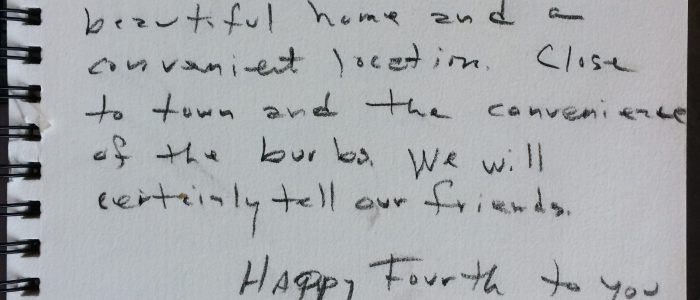 beautiful home and a
convenient location. Close
to town and the convenience
of the burbs. We will
certainly tell our friends.
Happy Fourth to you